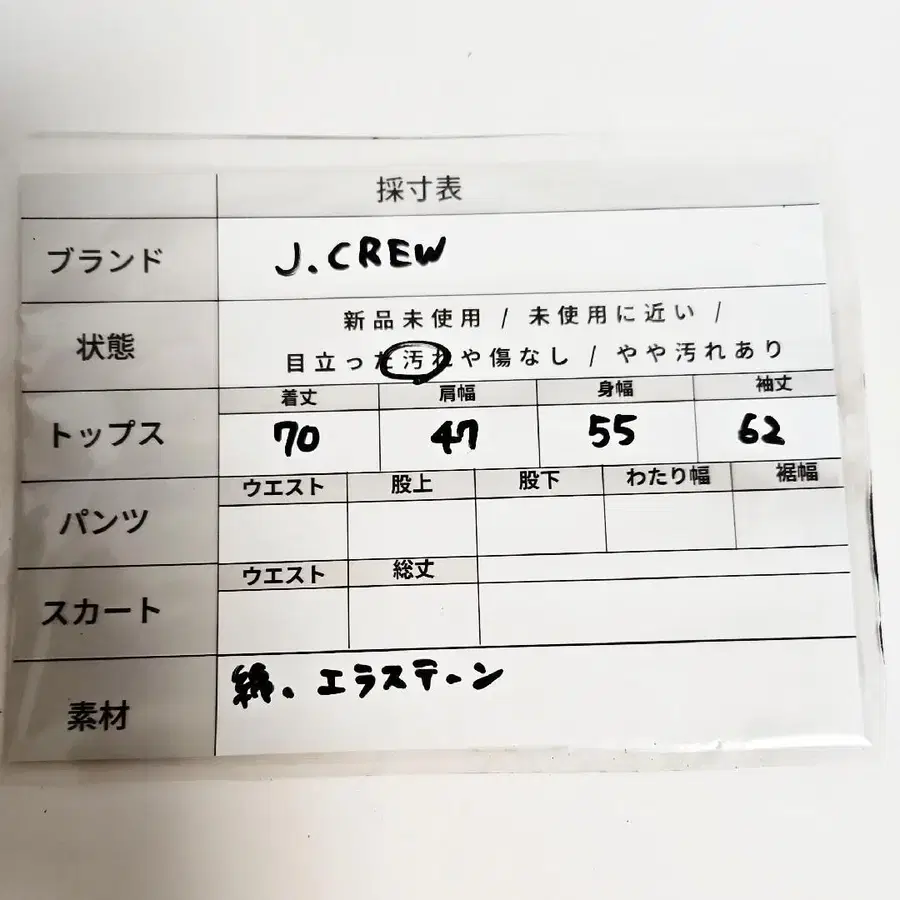 採寸表
ブランド J.CREW
状態 新品未使用 / 未使用に近い /
目立った汚れや傷なし / やや汚れあり
着丈 肩幅 身幅 袖丈
トップス 70 47 55 62
ウエスト 股上 股下 わたり幅 裾幅
パンツ
ウエスト 総丈
スカート
素材 綿、エラステーン